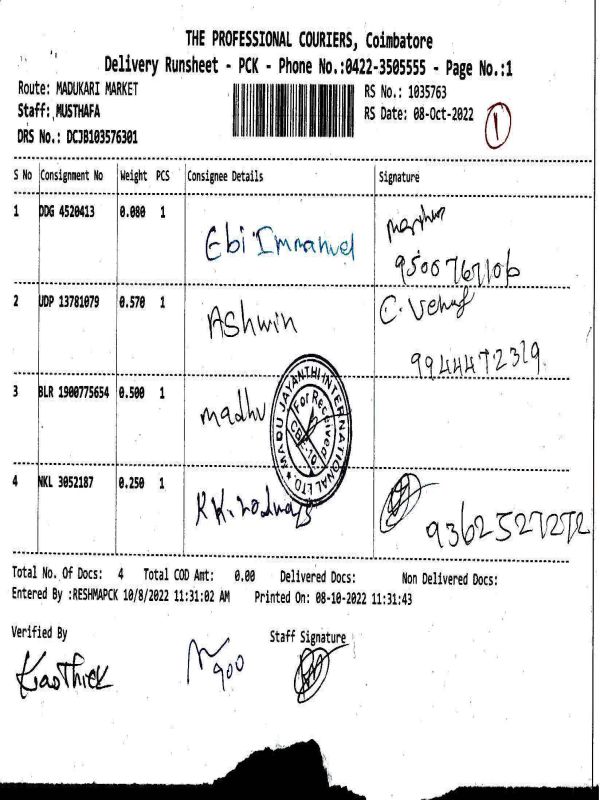 THE PROFESSIONAL COURIERS, Coimbatore
Delivery Runsheet - PCK - Phone No.:0422-3505555 - Page No.:1
Route: MADUKARI MARKET
RS No.: 1035763
Staff: MUSTHAFA
RS Date: 08-Oct-2022
1
DRS No.: DCJB103576301
S No Consignment No Weight PCS Consignee Details Signature
1 DDG 4520413 0.080 1
Ebi Immanuel
9500767106
2 UDP 13781079 0.570 1
Ashwin
C.
9944472319
3 BLR 1900775654 0.500 1
madhu
MADU JAYANTHI INTERNATIONAL LTD
For Received
CBE-10
4 NKL 3052187 0.250 1
KK.
9362527272
Total No. Of Docs: 4 Total COD Amt: 0.00 Delivered Docs: Non Delivered Docs:
Entered By :RESHMAPCK 10/8/2022 11:31:02 AM Printed On: 08-10-2022 11:31:43
Verified By
Staff Signature
Kaothick
900